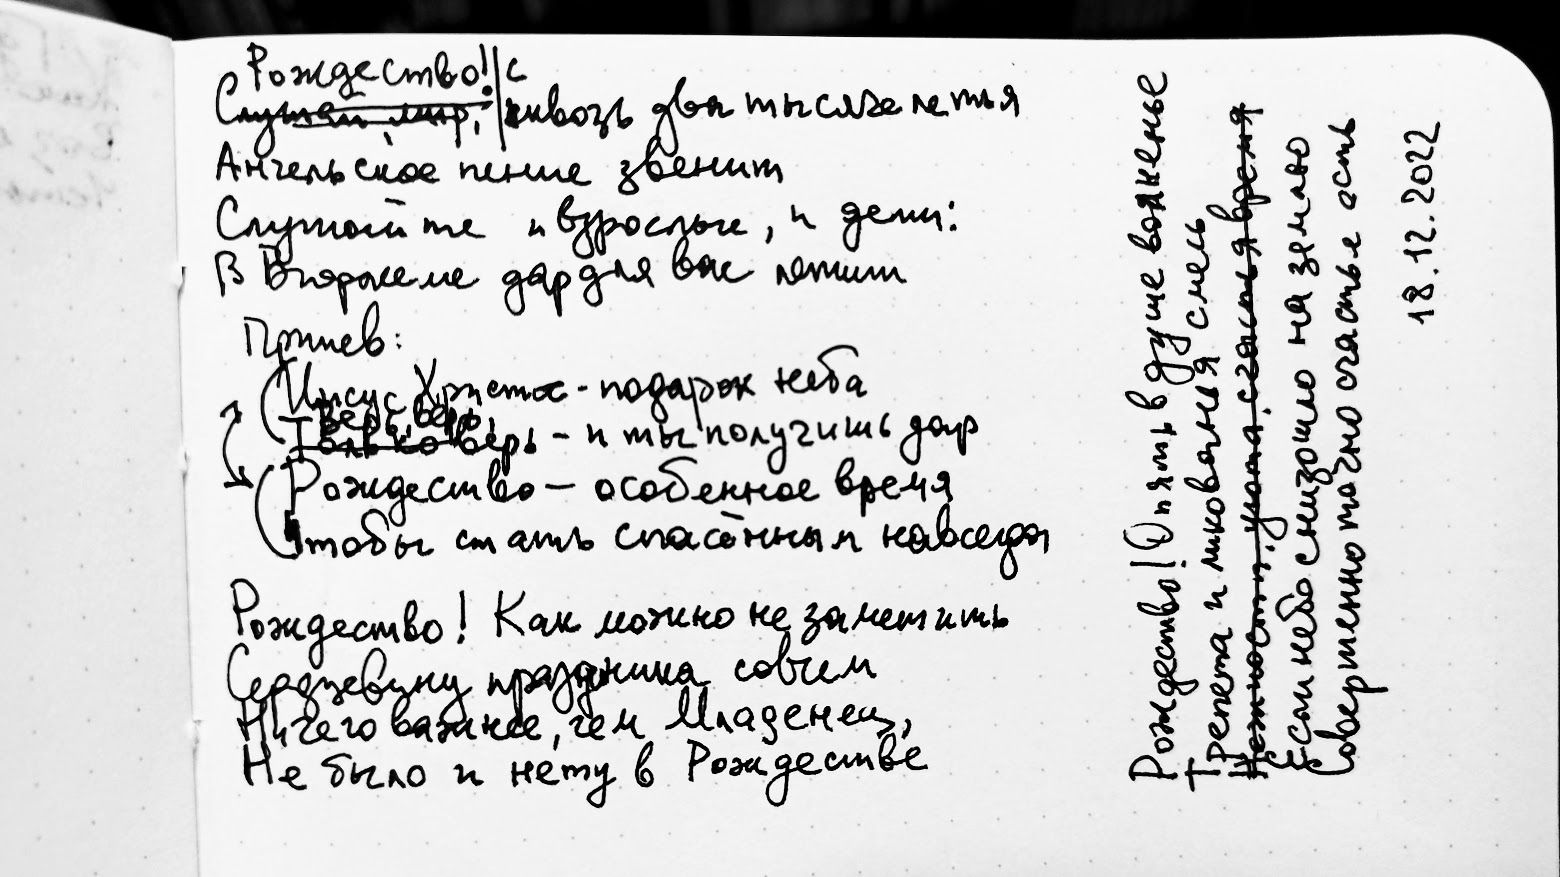 Рождество! с
Слушай мир, сквозь два тысячелетья
Ангельское пение звенит
Слушайте и взрослые, и дети:
В Вифлееме дар для вас лежит
Припев:
Иисус Христос - подарок неба
Верь, верь,
Только верь - и ты получишь дар
Рождество — особенное время
Чтобы стать спасённым навсегда
Рождество! Как можно не заметить
Сердцевину праздника совсем
Ничего важнее, чем Младенец,
Не было и нету в Рождестве
Рождество! Опять в душе волненье
Трепета и ликованья смесь
Нежности, уюта, счастья время
Если небо снизошло на землю
Совершенно точно счастье есть
18.12.2022